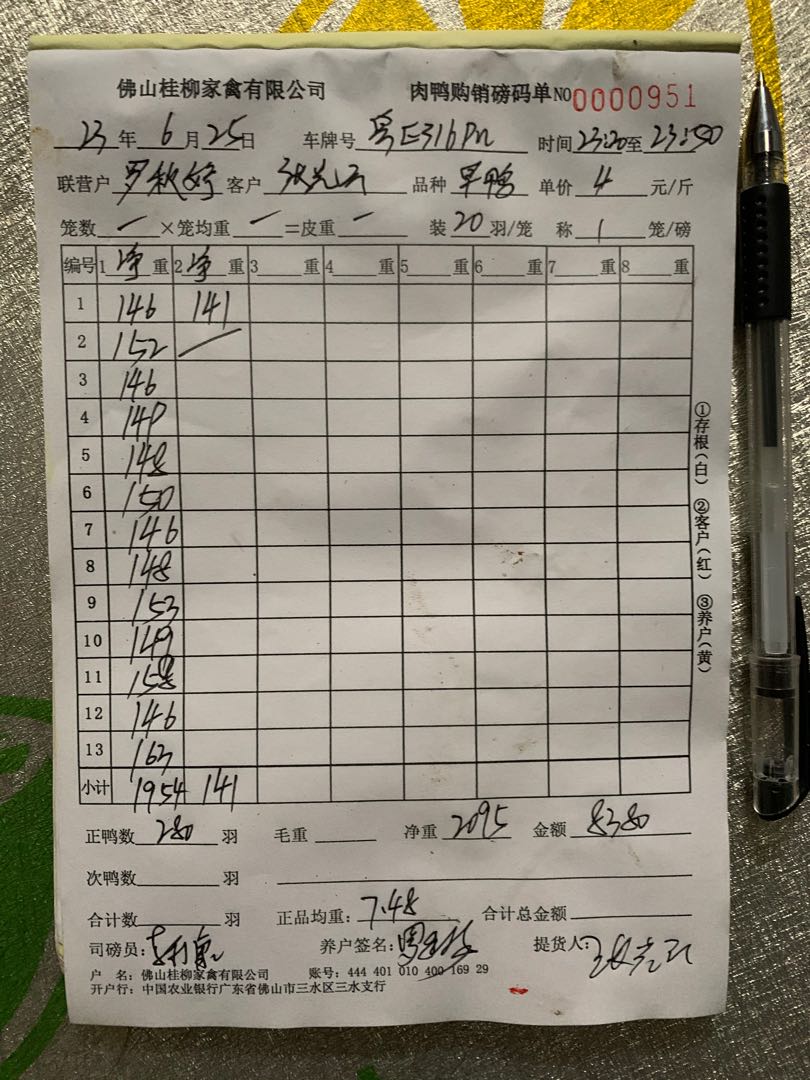 佛山桂柳家禽有限公司 肉鸭购销磅码单 NO 0000951
23年6月25日 车牌号 粤E316 时间23:20至23:50
联营户 罗秋 客户 张 品种 旱鸭 单价 4 元/斤
笼数 一 ×笼均重 一 =皮重 一 装20羽/笼 称 1 笼/磅
编号 1 净 重 2 净 重 3 重 4 重 5 重 6 重 7 重 8 重
1 146 141
2 152 —
3 146
4 149
5 148
6 150
7 146
8 148
9 153
10 149
11 158
12 146
13 163
小计 1954 141
正鸭数 280 羽 毛重 净重 2095 金额 8380
次鸭数 羽
合计数 羽 正品均重：7.48 合计总金额
司磅员： 养户签名： 提货人：
户 名：佛山桂柳家禽有限公司 账号：444 401 010 400 169 29
开户行：中国农业银行广东省佛山市三水区三水支行
①存根（白） ②客户（红） ③养户（黄）